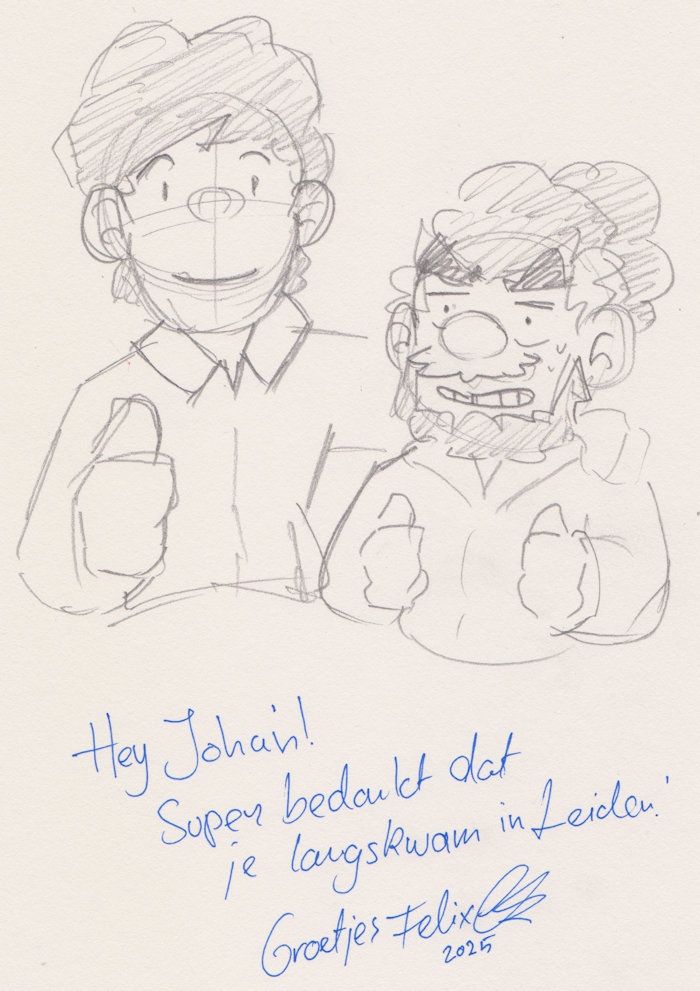 Hey Johan!
Super bedankt dat
je langskwam in Leiden!
Groetjes Felix
2025